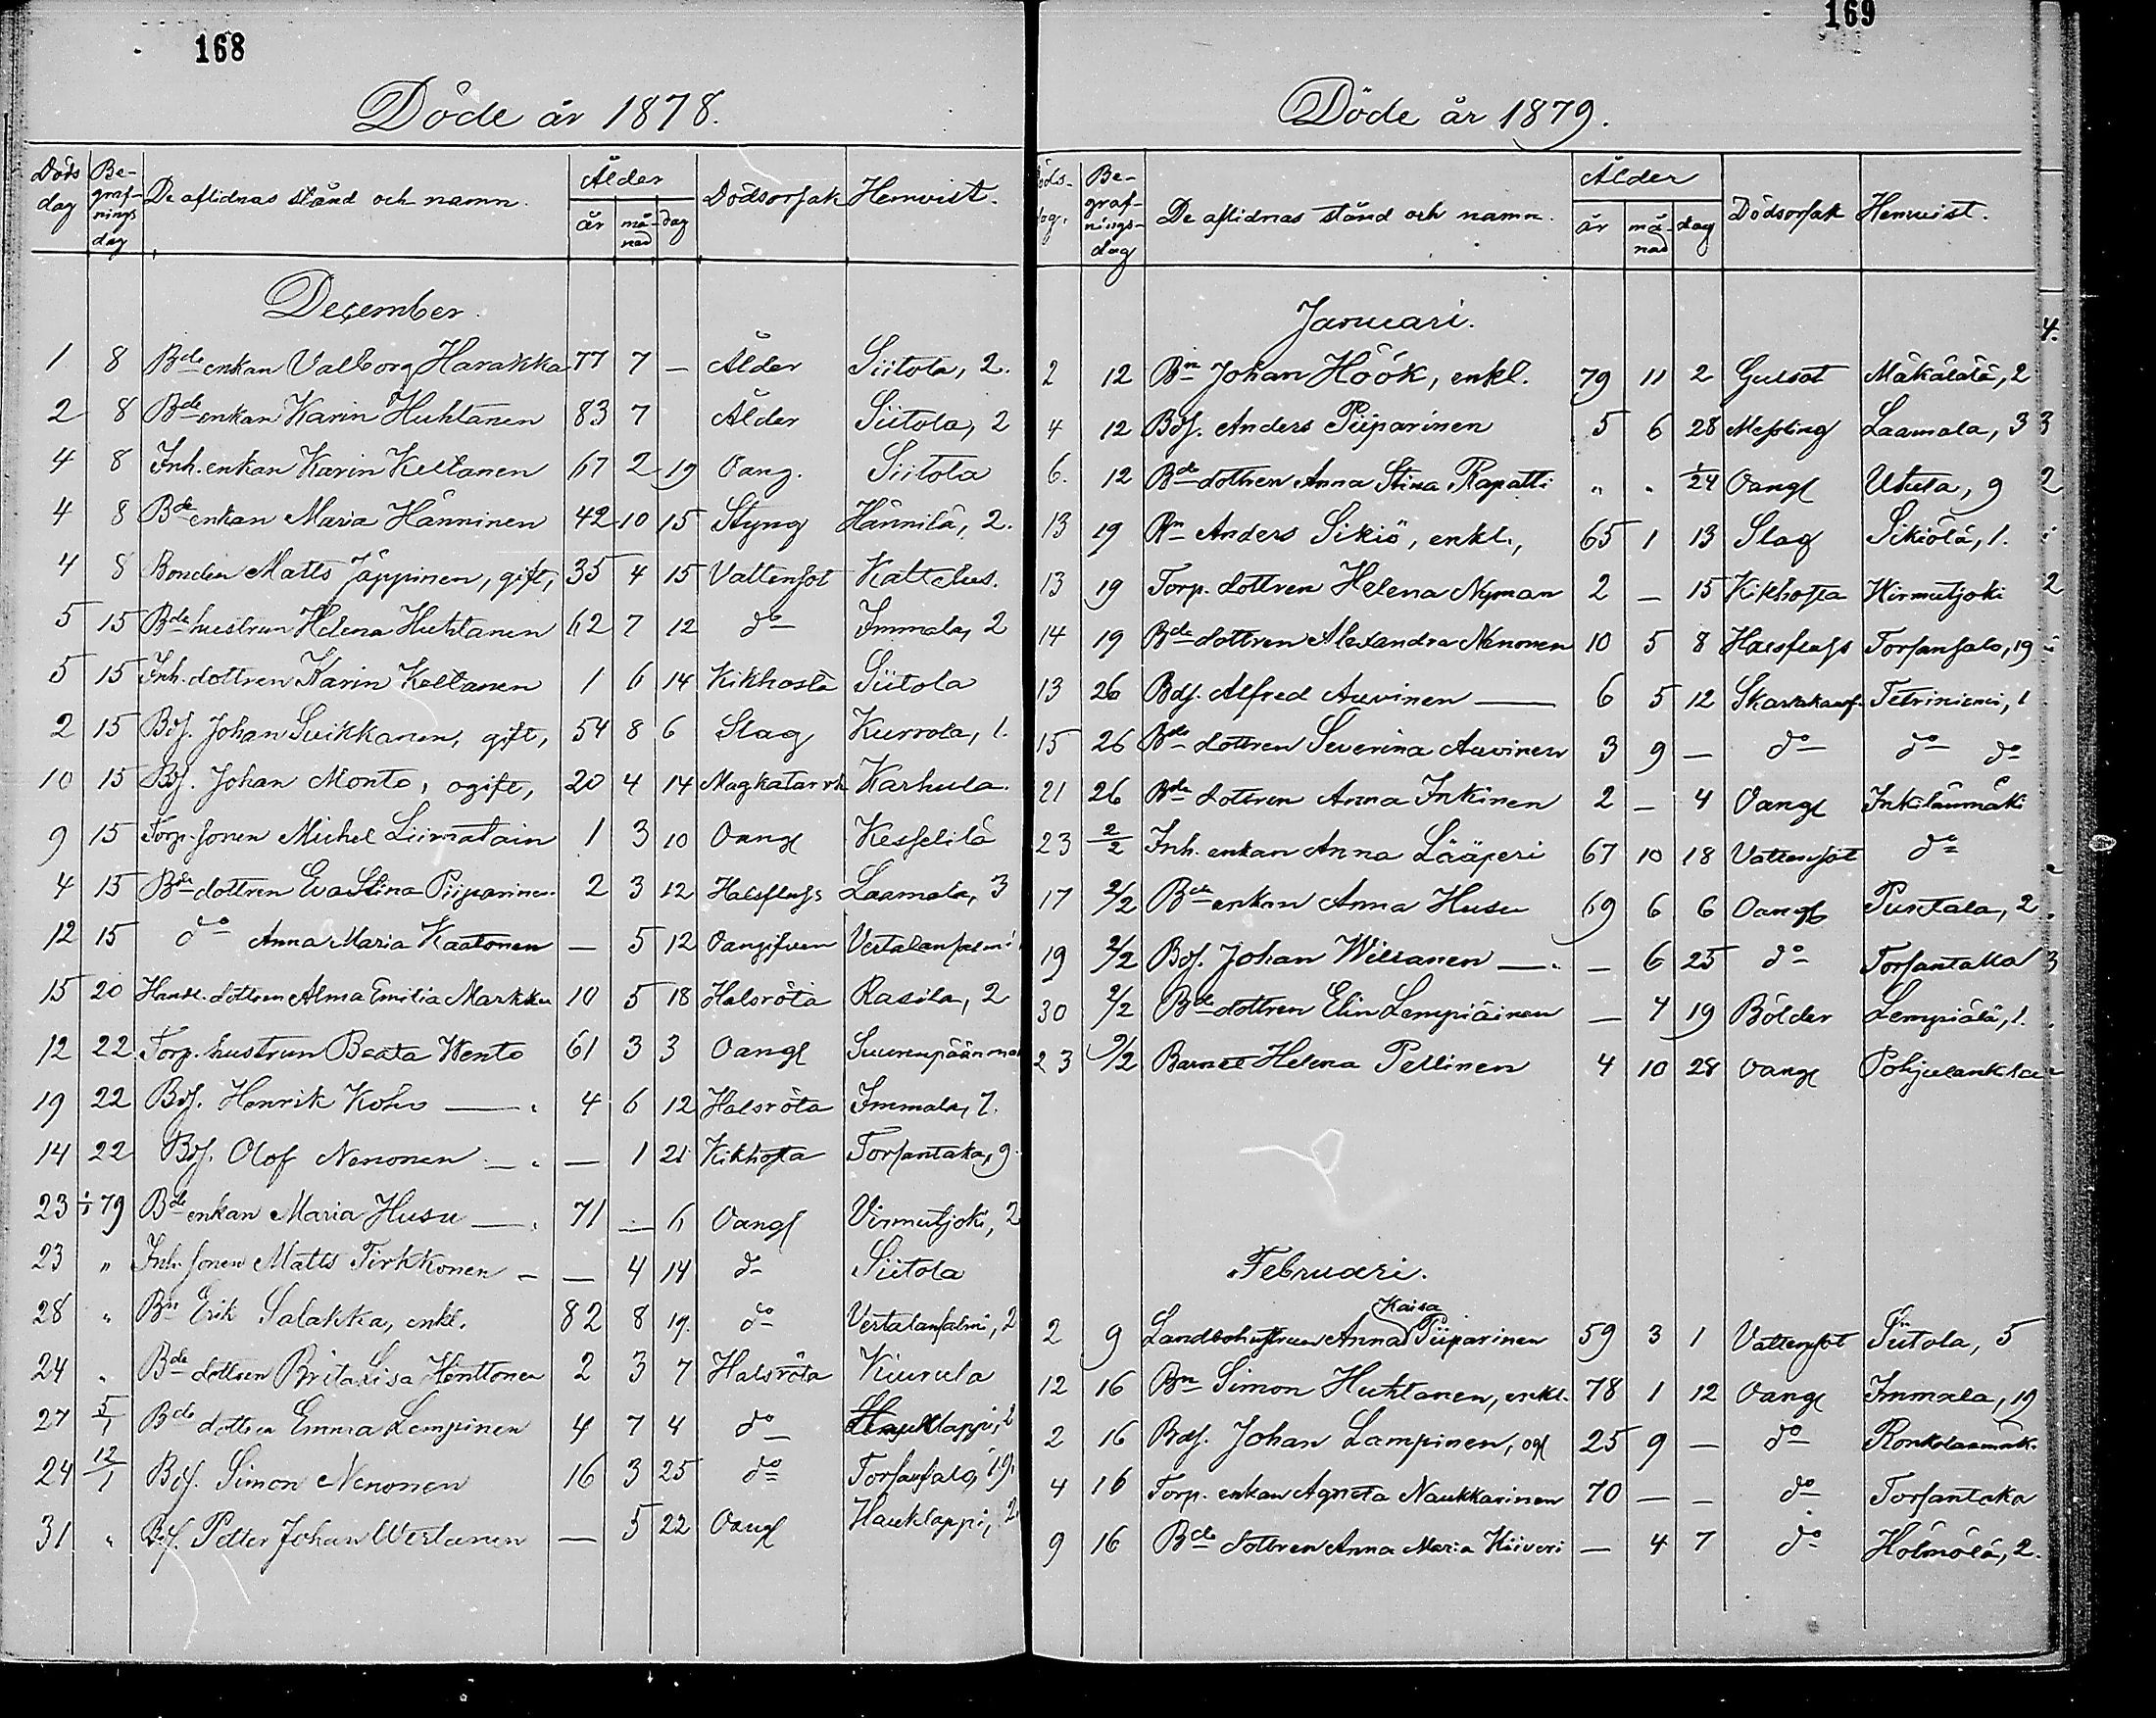 168
Döde år 1878.
Döds dag Begrafnings dag De aflidnas stånd och namn. Ålder år månad dag Dödsorsak Hemvist.
December.
1 8 Bde enkan Valborg Harakka 77 7 — Ålder Siitola, 2.
2 8 Bde enkan Karin Huhtanen 83 7 Ålder Siitola, 2
4 8 Inh. enkan Karin Keltanen 67 2 19 Oang. Siitola
4 8 Bde enkan Maria Hänninen 42 10 15 Styng Hännilä, 2.
4 8 Bonden Matts Jäppinen, gift, 35 4 15 Vattensot
5 15 Bde hustrun Helena Huhtanen 62 7 12 do Immala, 2
5 15 Inh. dottren Karin Keltanen 1 6 14 Kikhosta Siitola
2 15 Bds. Johan Suikkanen, gift, 54 8 6 Slag Kurrola, 1.
10 15 Bds. Johan Monto, ogift, 20 4 14 Magkatarrh Karhula.
9 15 Torp. sonen Michel Liimatain 1 3 10 Oang Kesselilä
4 15 Bde dottren Eva Stina Piiparinen 2 3 12 Halsfluss Laamala, 3
12 15 do Anna Maria Kaatonen — 5 12 Oangifven
15 20 Handl. dottren Alma Emilia Markku 10 5 18 Halsröta Rasila, 2
12 22 Torp. hustrun Beata Wento 61 3 3 Oangf
19 22 Bds. Henrik Koho — 4 6 12 Halsröta Immala, 7.
14 22 Bds. Olof Nenonen — — 1 21 Kikhosta Torsantaka, 9.
23 1/1 79 Bde enkan Maria Husu — 71 — 6 Oangf Virmutjoki, 2
23 " Inh. sonen Matts Tirkkonen — — 4 14 do Siitola
28 " Bn Erik Salakka, enkl. 82 8 19. do Vertalansalmi, 2
24 " Bde dottren Brita Lisa Henttonen 2 3 7 Halsröta Kiurula
27 5/1 Bde dottren Emma Lempinen 4 7 4 do Hauklappi, 2
24 12/1 Bds. Simon Nenonen 16 3 25 do Torsansalo, 19.
31 " Bds. Petter Johan Wertanen — 5 22 Oangf Hauklappi, 2.
169
Döde år 1879.
Döds-dag. Begrafnings-dag De aflidnas stånd och namn. Ålder år månad dag Dödsorsak Hemvist.
Januari.
2 12 Bn Johan Höök, enkl. 79 11 2 Gulsot Mäkälälä, 2
4 12 Bds. Anders Piiparinen 5 6 28 Messling Laamala, 3
6. 12 Bde dottren Anna Stina Rapatti " " 1/24 Oangf Utula, 9
13 19 Bn Anders Sikiö, enkl., 65 1 13 Slag Sikiölä, 1.
13 19 Torp. dottren Helena Nyman 2 — 15 Kikhosta Wirmutjoki
14 19 Bde dottren Alexandra Nenonen 10 5 8 Halsfluss Torsansalo, 19
13 26 Bds. Alfred Auvinen — 6 5 12 Skarlakansf. Tetriniemi, 1
15 26 Bde dottren Severina Auvinen 3 9 — do do do
21 26 Bde dottren Anna Inkinen 2 — 4 Oangf Inkilänmäki
23 2/2 Inh. enkan Anna Lääperi 67 10 18 Vattensot do
17 2/2 Bde enkan Anna Husu 69 6 6 Oangf Puntala, 2
19 2/2 Bds. Johan Willanen — — 6 25 do Torsantaka
30 2/2 Bde dottren Elin Lempiäinen — 4 19 Bölder Lempiälä, 1.
23 9/2 Barnet Helena Pellinen 4 10 28 Oangf
Februari.
Kaisa
2 9 Landbohustrun Anna Piiparinen 59 3 1 Vattensot Siitola, 5
12 16 Bn Simon Huhtanen, enkl. 78 1 12 Oangf Immala, 19
2 16 Bds. Johan Lampinen, og 25 9 — do
4 16 Torp. enkan Agneta Naukkarinen 70 — — do Torsantaka
9 16 Bde dottren Anna Maria Kiiveri — 4 7 do Hölmölä, 2.